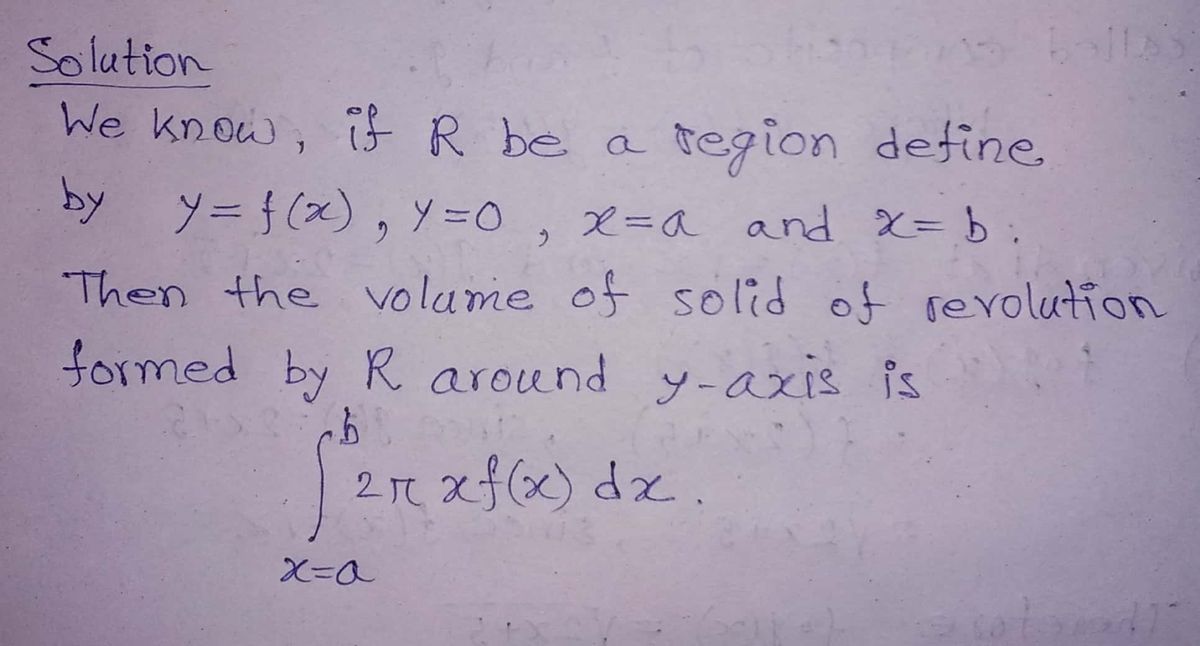 Solution
We know, if R be a region define
by y=f(x), y=0, x=a and x=b.
Then the volume of solid of revolution
formed by R around y-axis is
∫_{x=a}^{b} 2π x f(x) dx.